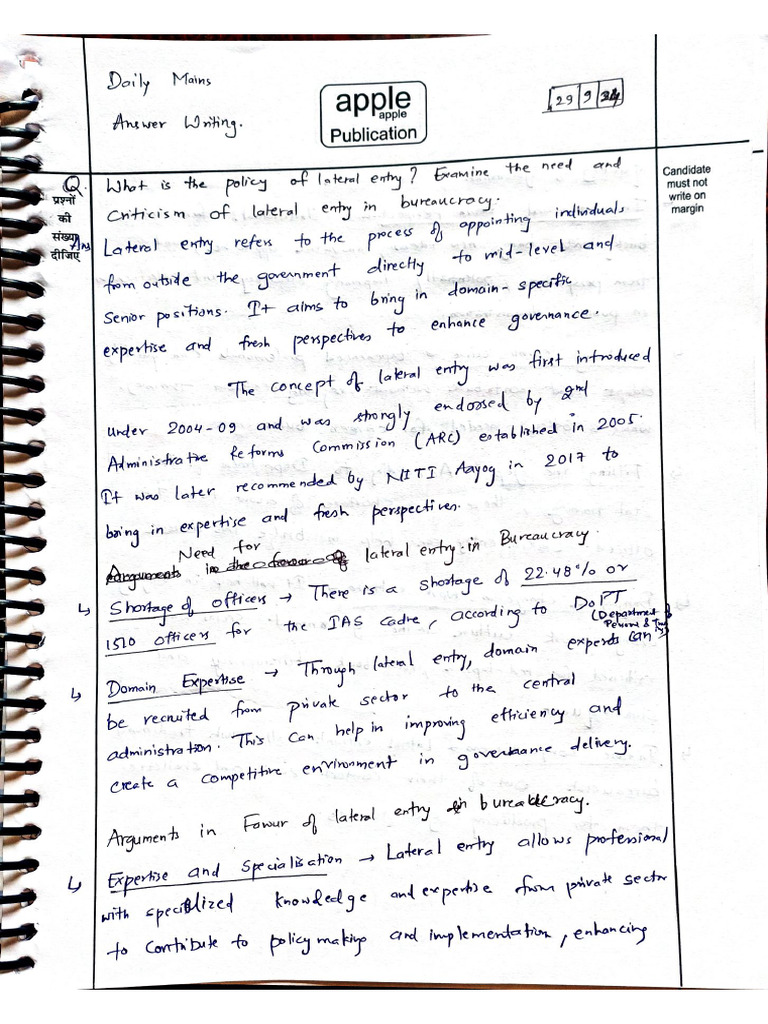 Daily Mains
Answer Writing.
apple
apple
Publication
29 9 24
Candidate
must not
write on
margin
प्रश्नों
की
संख्या
दीजिए
Q. What is the policy of lateral entry? Examine the need and
Criticism of lateral entry in bureaucracy.
Ans Lateral entry refers to the process of appointing individuals
from outside the government directly to mid-level and
Senior positions. It aims to bring in domain-specific
expertise and fresh perspectives to enhance governance.
The concept of lateral entry was first introduced
under 2004-09 and was strongly endorsed by 2nd
Administrative Reforms Commission (ARC) established in 2005.
It was later recommended by NITI Aayog in 2017 to
bring in expertise and fresh perspectives.
Need for
Arguments in the favour of lateral entry in Bureaucracy.
↳ Shortage of officers → There is a shortage of 22.48% or
1510 officers for the IAS Cadre, according to DoPT
(Department of
↳ Domain Expertise → Through lateral entry, domain experts can
be recruited from private sector to the central
administration. This can help in improving efficiency and
create a competitive environment in governance delivery.
Arguments in Favour of lateral entry in bureaucracy.
↳ Expertise and Specialisation → Lateral entry allows professional
with specialized knowledge and expertise from private sector
to contribute to policy making and implementation, enhancing